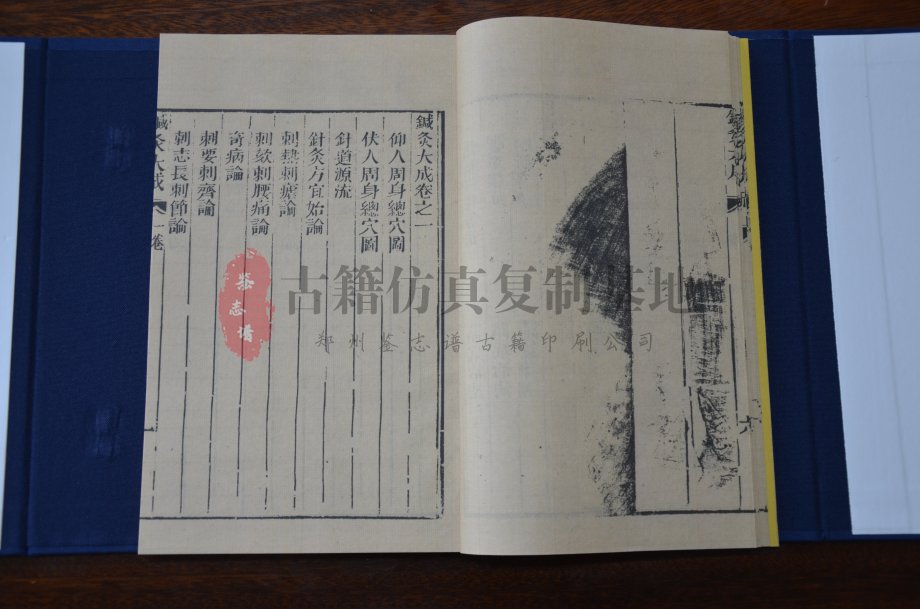 鍼灸大成卷之一
仰人周身總穴圖
伏人周身總穴圖
針道源流
針灸方宜始論
刺熱刺瘧論
刺欬刺腰痛論
奇病論
刺要刺齊論
刺志長刺節論
鍼灸大成 一卷
鉴志谱
古籍仿真复制基地
郑州鉴志谱古籍印刷公司